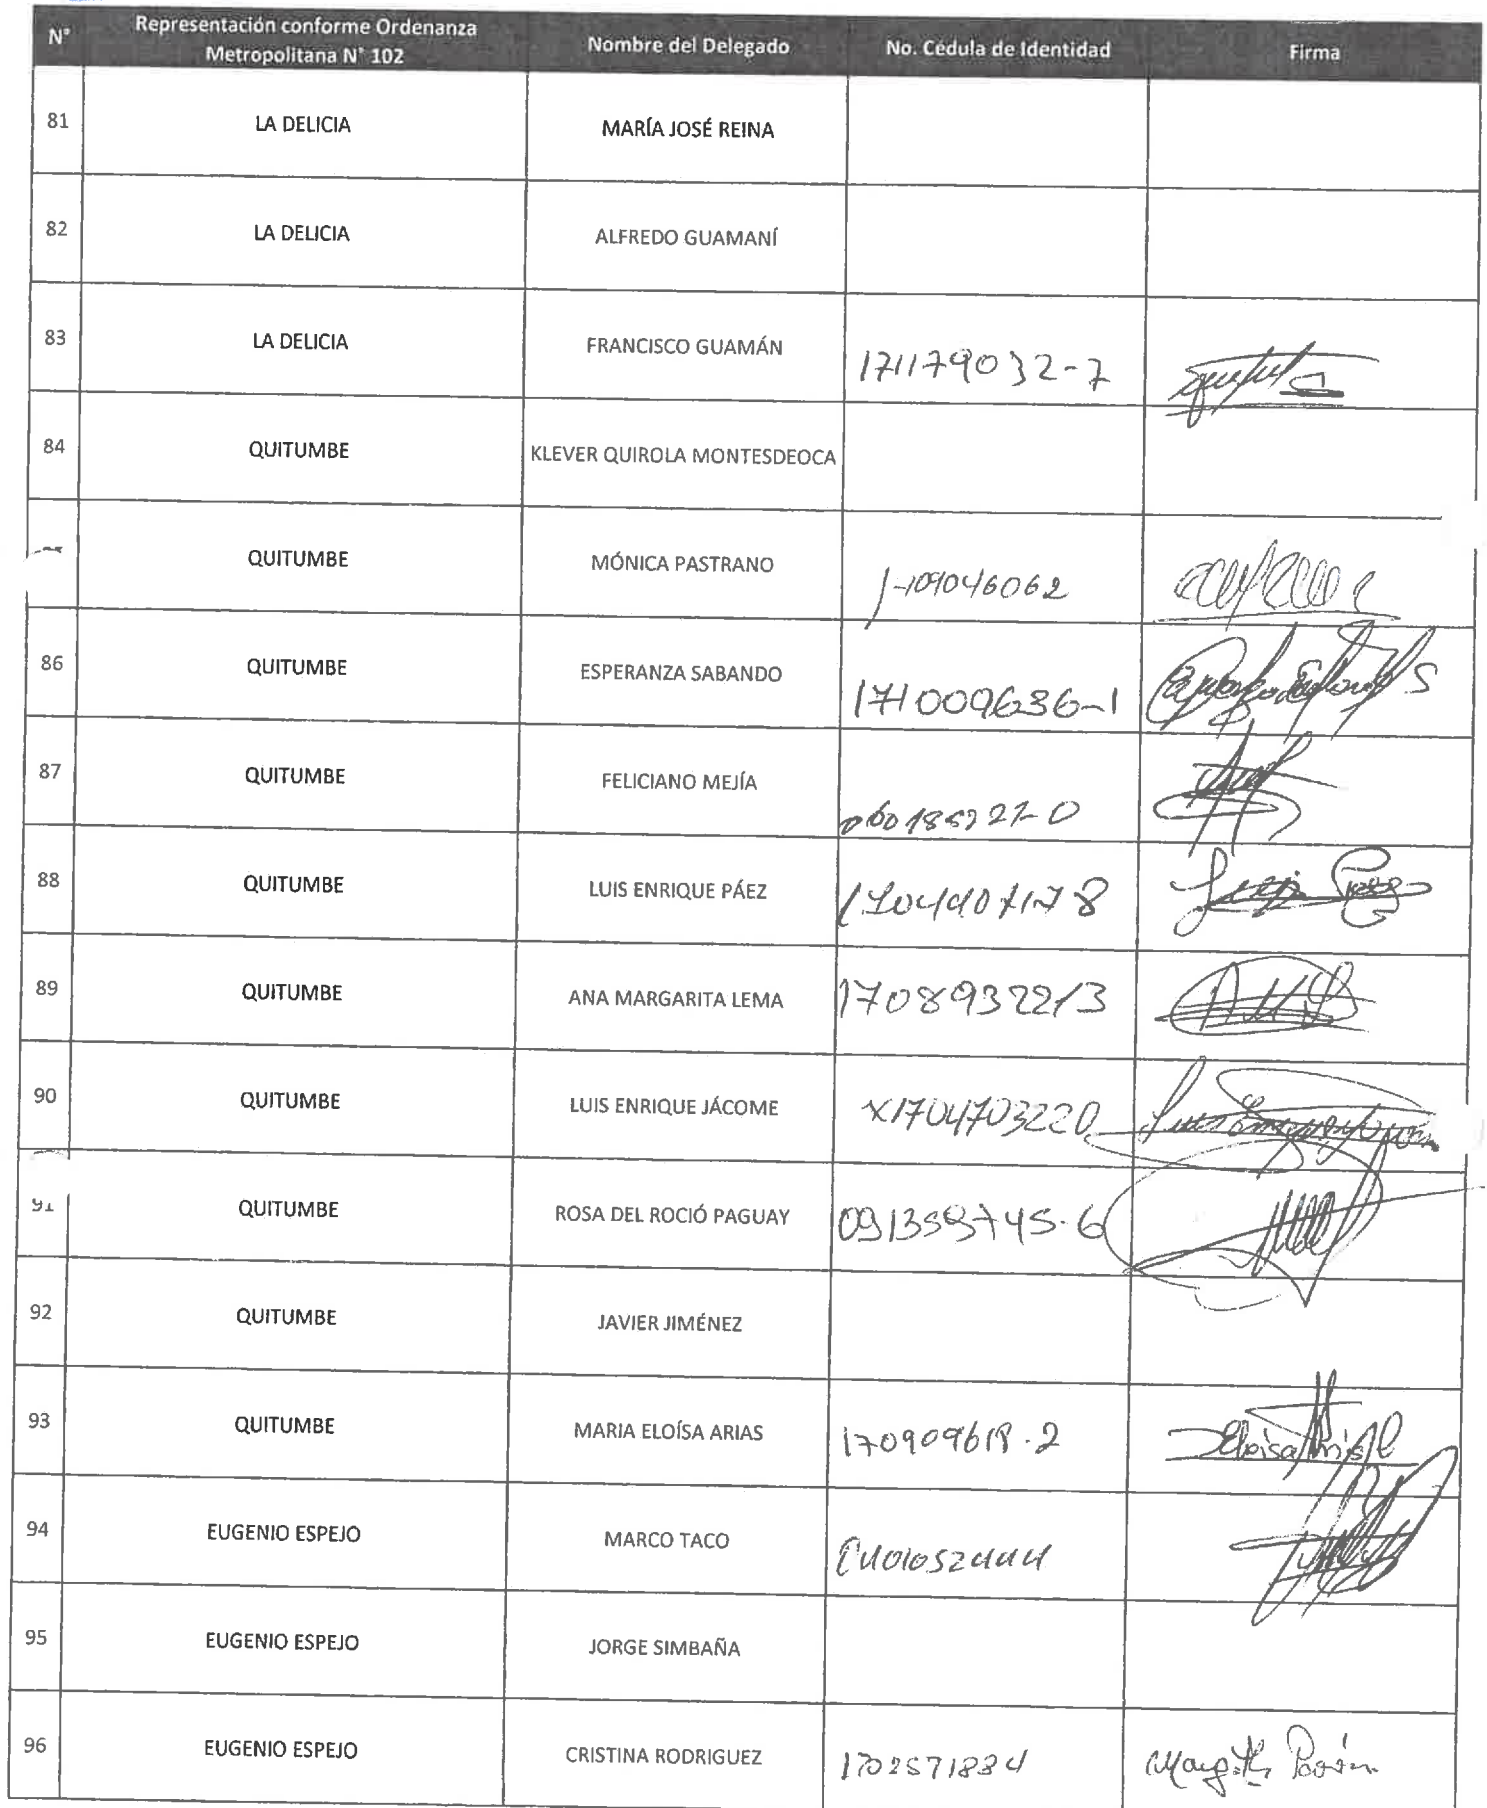 N° Representación conforme Ordenanza Metropolitana N° 102 Nombre del Delegado No. Cédula de Identidad Firma
81 LA DELICIA MARÍA JOSÉ REINA
82 LA DELICIA ALFREDO GUAMANÍ
83 LA DELICIA FRANCISCO GUAMÁN 171179032-7
84 QUITUMBE KLEVER QUIROLA MONTESDEOCA
QUITUMBE MÓNICA PASTRANO
86 QUITUMBE ESPERANZA SABANDO 171009636-1
87 QUITUMBE FELICIANO MEJÍA
88 QUITUMBE LUIS ENRIQUE PÁEZ
89 QUITUMBE ANA MARGARITA LEMA 1708932213
90 QUITUMBE LUIS ENRIQUE JÁCOME x1704703220
91 QUITUMBE ROSA DEL ROCIÓ PAGUAY
92 QUITUMBE JAVIER JIMÉNEZ
93 QUITUMBE MARIA ELOÍSA ARIAS 170909618-2
94 EUGENIO ESPEJO MARCO TACO
95 EUGENIO ESPEJO JORGE SIMBAÑA
96 EUGENIO ESPEJO CRISTINA RODRIGUEZ 1702571884